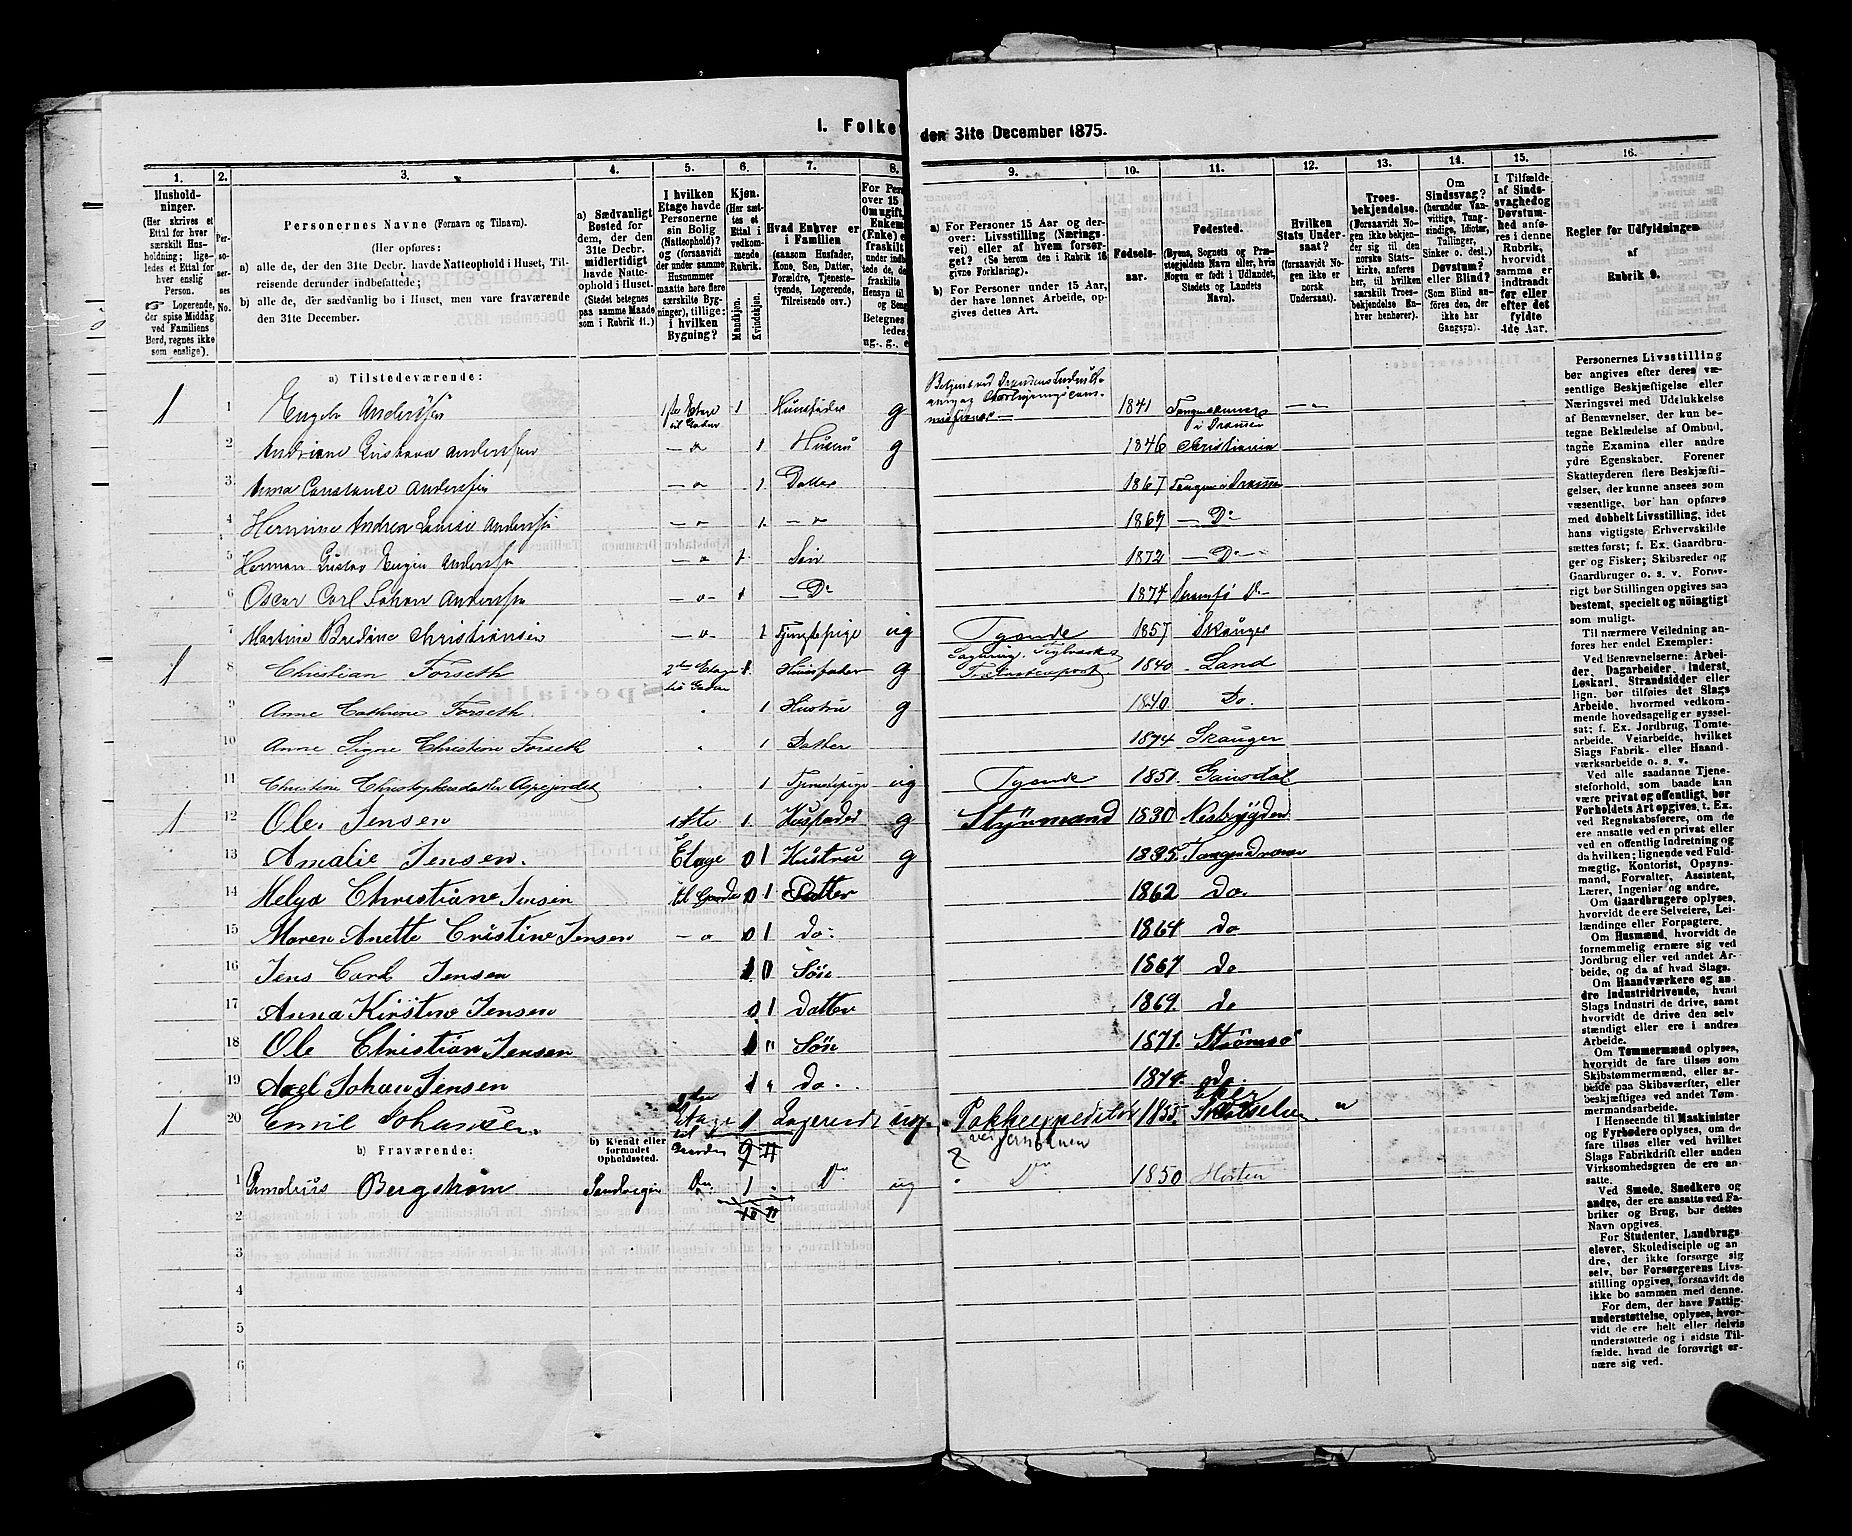 I. Folke
den 31te December 1875.
1. 2. 3. 4. 5. 6. 7. 8. 9. 10. 11. 12. 13. 14. 15. 16.
Husholdninger.
(Her skrives et Ettal for hver særskilt Husholdning; ligeledes et Ettal for hver enslig Person.
Logerende, der spise Middag ved Familiens Bord, regnes ikke som enslige).
Personernes No.
Personernes Navne (Fornavn og Tilnavn).
(Her opføres:
a) alle de, der den 31te Decbr. havde Natteophold i Huset, Tilreisende derunder indbefattede;
b) alle de, der sædvanlig bo i Huset, men vare fraværende den 31te December.
a) Sædvanligt Bosted for dem, der den 31te Decbr. midlertidigt havde Natteophold i Huset.
(Stedet betegnes paa samme Maade som i Rubrik 11.)
I hvilken Etage havde Personerne sin Bolig (Natteophold)? og (forsaavidt der under samme Husnummer maatte høre flere særskilte Bygninger), tillige: i hvilken Bygning?
Kjøn.
(Her sættes et Ettal i vedkommende Rubrik.
Mandkjøn.
Kvindekjøn.
Hvad Enhver er i Familien
(saasom Husfader, Kone, Søn, Datter, Forældre, Tjenestetyende, Logerende, Tilreisende osv.)
a) For Personer 15 Aar og derover: Livsstilling (Næringsvei) eller af hvem forsørget? (Se herom den i Rubrik 16 givne Forklaring).
b) For Personer under 15 Aar, der have lønnet Arbeide, opgives dettes Art.
Fødselsaar.
Fødested.
(Byens, Sognets og Præstegjeldets Navn eller, hvis Nogen er født i Udlandet, Stedets og Landets Navn).
Hvilken Stats Undersaat?
(forsaavidt Nogen ikke er norsk Undersaat).
Troesbekjendelse.
(Forsaavidt Nogen ikke bekjender sig til den norske Statskirke, anføres her, til hvilken særskilt Troesbekjendelse Enhver henhører).
Om Sindssvag? (herunder Vanvittige, Tungsindige, Idioter, Tullinger, Sinker o. desl.) Døvstum? eller Blind?
(Som Blind anføres den, der ikke har Gangsyn).
I Tilfælde af Sindssvaghed og Døvstumhed anføres i denne Rubrik, hvorvidt samme er indtraadt før eller efter det fyldte 4de Aar.
Regler for Udfyldningen af Rubrik 9.
a) Tilstedeværende:
1 1 Engebr. Anderssen 1ste Etage til Gaden 1 Huusfader g 1841 i Dramen
2 Andriane Gustava Anderssen 1 g 1846 Christiania
3 Anna Constance Anderssen 1 Datter 1867 Tangen Dramen
4 Hermine Andrea Lovise Anderssen 1 1869 Do
5 Herman Gustav Anderssen 1 Søn 1872 Do
6 Oscar Carl Johan Anderssen 1 Do 1874 Do
7 Martine Bredine Christiansen 1 Tjenstepige ug Tyende 1857 Skouger
1 8 Christian Forseth 2den Etage til Gaden 1 Huusfader g 1840 Land
9 Anne Cathrine Forseth 1 Hustru g 1840 Do
10 Anne Signe Christine Forseth 1 Datter 1874 Skouger
11 Christine Christophersdatter 1 Tjenestepige ug Tyende 1851 Gausdal
1 12 Ole Jensen 1ste 1 Husfader g Styrmand 1830
13 Amalie Jensen. Etage 0 1 Hustru g 1835 Tangen Dramen
14 Helga Christiane Jensen til Gaarden 0 1 Datter 1862 do
15 Maren Anette Cristine Jensen 0 1 do 1864 do
16 Jens Carl Jensen 1 0 Søn 1867 do
17 Anna Kirstine Jensen 0 1 datter 1869 do
18 Ole Christian Jensen 1 " Søn 1871 Strømsø
19 Axel Johan Jensen 1 " do 1874 do
1 20 Emil Johansen. Etage til Gaarden 1 Logerende ug. Pakkexpeditør ved jernbanen 1855
9 11
b) Fraværende:
b) Kjendt eller formodet Opholdssted.
1 Bergstrøm Do 1 Do ug Do 1850 Horten
10 11
2
3
4
5
6
Personernes Livsstilling bør angives efter deres væsentlige Beskjæftigelse eller Næringsvei med Udelukkelse af Benævnelser, der kun betegne Beklædelse af Ombud, tagne Examina eller andre ydre Egenskaber. Forener Skatteyderen flere Beskjæftigelser, der kunne ansees som væsentlige, bør han opføres med dobbelt Livsstilling, idet hans vigtigste Erhvervskilde sættes først; f. Ex. Gaardbruger og Fisker; Skibsreder og Gaardbruger o. s. v. Forøvrigt bør Stillingen opgives saa bestemt, specielt og nøiagtigt som muligt.
Til nærmere Veiledning anføres her endel Exempler:
Ved Benævnelserne: Arbeider, Dagarbeider, Inderst, Løskarl, Strandsidder eller lign. bør tilføies det Slags Arbeide, hvormed vedkommende hovedsagelig er sysselsat; f. Ex. Jordbrug, Tomtearbeide, Veiarbeide, hvilket Slags Fabrik- eller Haandværksarbeide o. s. v.
Ved alle saadanne Tjenesteforhold, som baade kan være privat og offentligt, bør Forholdets Art opgives, t. Ex. ved Regnskabsførere, om de ere ansatte ved en privat eller ved en offentlig Indretning og da hvilken; lignende ved Fuldmægtig, Kontorist, Opsynsmand, Forvalter, Assistent, Lærer, Ingeniør og andre.
Om Gaardbrugere opgives, hvorvidt de ere Selveiere, Leilændinge eller Forpagtere.
Om Husmænd, hvorvidt de fornemmelig ernære sig ved Jordbrug eller ved andet Arbeide, og da af hvad Slags.
Om Haandværkere og andre Industridrivende, hvad Slags Industri de drive, samt hvorvidt de drive den selvstændigt eller ere i andres Arbeide.
Om Tømmermænd oplyses, hvorvidt de fare tilsøs som Skibstømmermænd, eller arbeide paa Skibsværfter, eller beskjæftiges ved andet Tømmermandsarbeide.
I Henseende til Maskinister og Fyrbødere oplyses, om de fare tilsøs eller ved hvilket Slags Fabrikdrift eller anden Virksomhed de ere ansatte.
Ved Smede, Snedkere og andre, der ere ansatte ved Fabriker og Brug, bør dettes Navn opgives.
For Studenter, Landbrugselever, Skoledisciple og andre, der ikke forsørge sig selv, bør Forsørgerens Livsstilling opgives, forsaavidt de ikke bo sammen med denne.
For dem, der have Fattigunderstøttelse, oplyses, hvorvidt de ere helt eller delvis understøttede og i sidste Tilfælde, hvad de forøvrigt ernære sig ved.